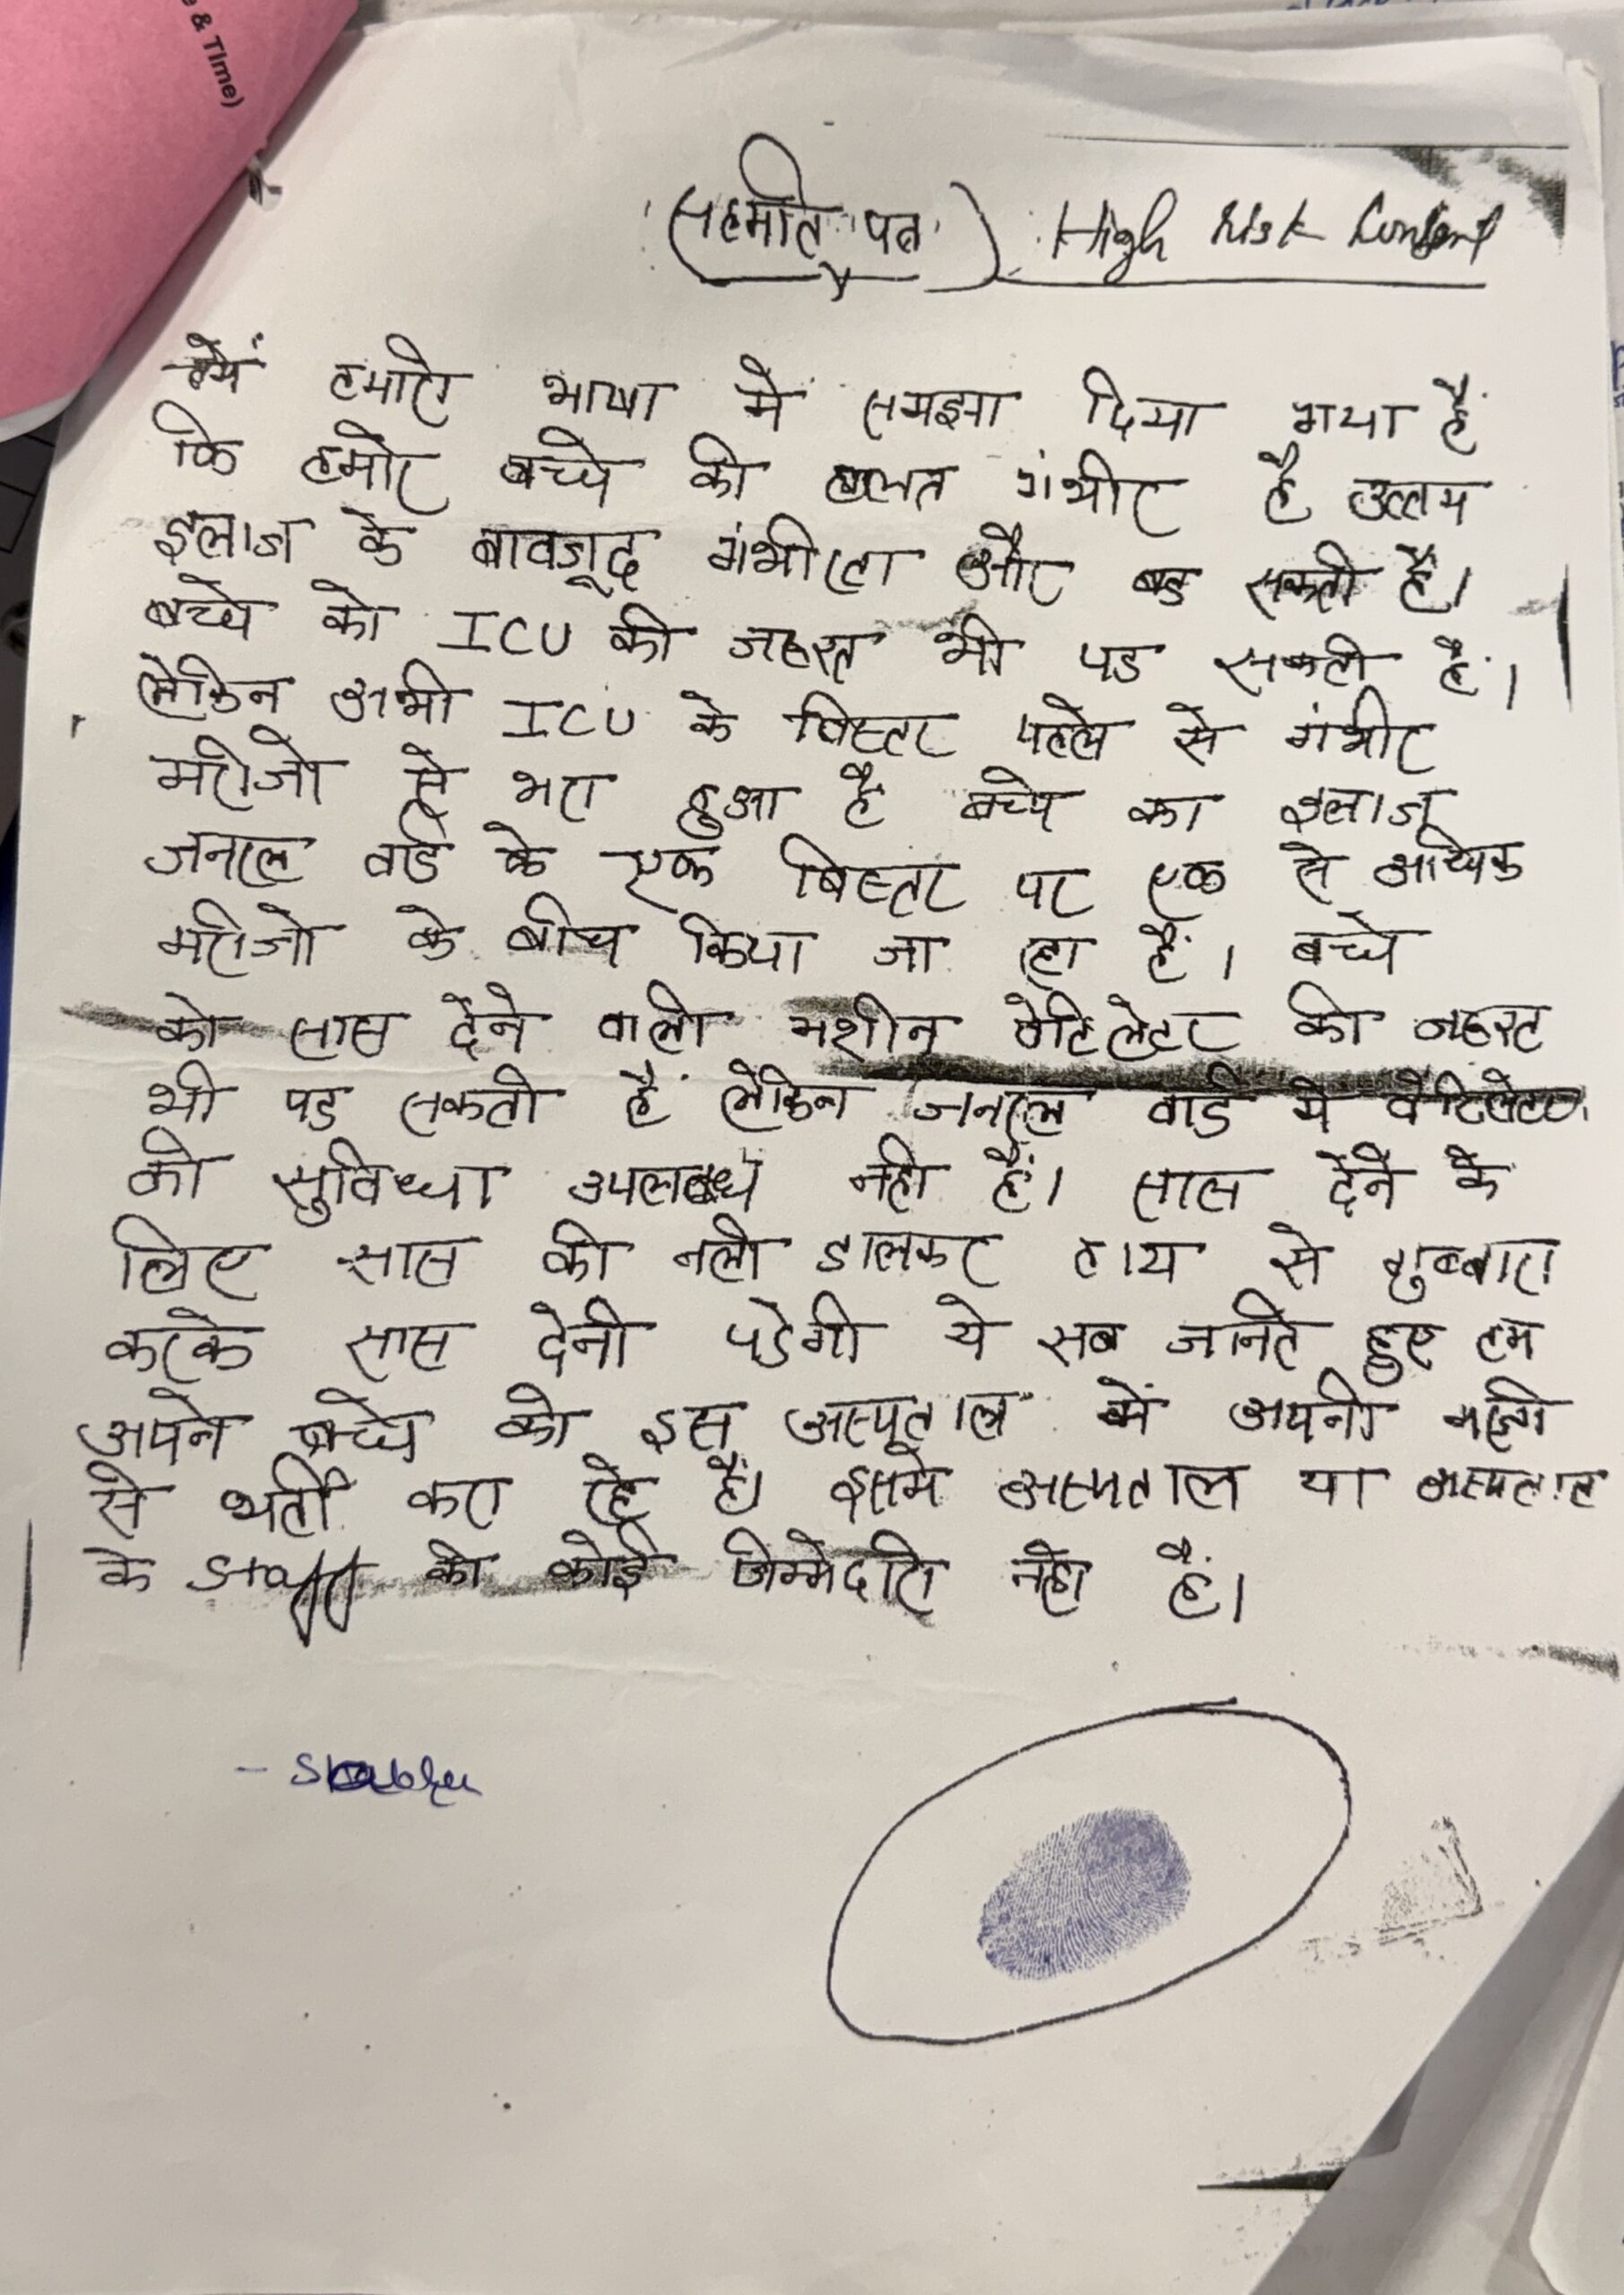 e & Time)
(सहमति पत्र) High Risk Consent
हमें हमारी भाषा में समझा दिया गया है
कि हमारे बच्चे की हालत गंभीर है उत्तम
इलाज के बावजूद गंभीरता और बढ सकती है।
बच्चे को ICU की जरुरत भी पड सकती है।
लेकिन अभी ICU के बिस्तर पहले से गंभीर
मरीजो से भरा हुआ है बच्चे का इलाज
जनरल वार्ड के एक बिस्तर पर एक से अधिक
मरीजो के बीच किया जा रहा है। बच्चे
को सास देने वाली मशीन वेंटिलेटर की जरुरत
भी पड सकती है लेकिन जनरल वार्ड मे वेंटिलेटर
की सुविधा उपलब्ध नही है। सास देने के
लिए सास की नली डालकर हाथ से गुब्बारा
करके सास देनी पडेगी ये सब जानते हुए हम
अपने बच्चे को इस अस्पताल में अपनी मर्जी
से भर्ती करा रहे है। इसमे अस्पताल या अस्पताल
के staff की कोई जिम्मेदारी नही है।